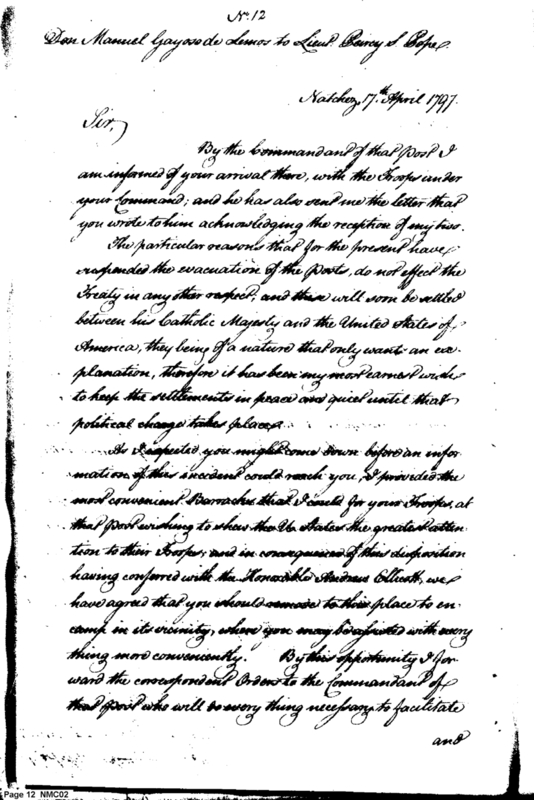 No. 12
Don Manuel Gayoso de Lemos to Lieut. Percy S. Pope.
Natchez, 17th April 1797.
Sir,
By the Commandant of that Post I
am informed of your arrival there, with the Troops under
your Command; and he has also sent me the letter that
you wrote to him acknowledging the reception of my two.
The particular reasons that for the present have
suspended the evacuation of the Posts, do not effect the
Treaty in any other respect; and these will soon be settled
between his Catholic Majesty and the United States of
America, they being of a nature that only wants an ex-
planation, therefore it has been my most earnest wish
to keep the settlements in peace and quiet until that
political change takes place.
As I expected you might come down before an infor
mation of this incident could reach you, I provided the
most convenient Barracks that I could for your Troops, at
that Post wishing to shew the U. States the greatest atten
tion to their Troops; and in consequence of this disposition
having conferred with the Honorable Andrew Ellicott, we
have agreed that you should remove to this place to en
camp in its vicinity, where you may be assisted with every
thing more conveniently. By this oppertunity I for
ward the correspondent Orders to the Commandant of
that Post who will do every thing necessary to facilitate
and
Page 12 NMC02